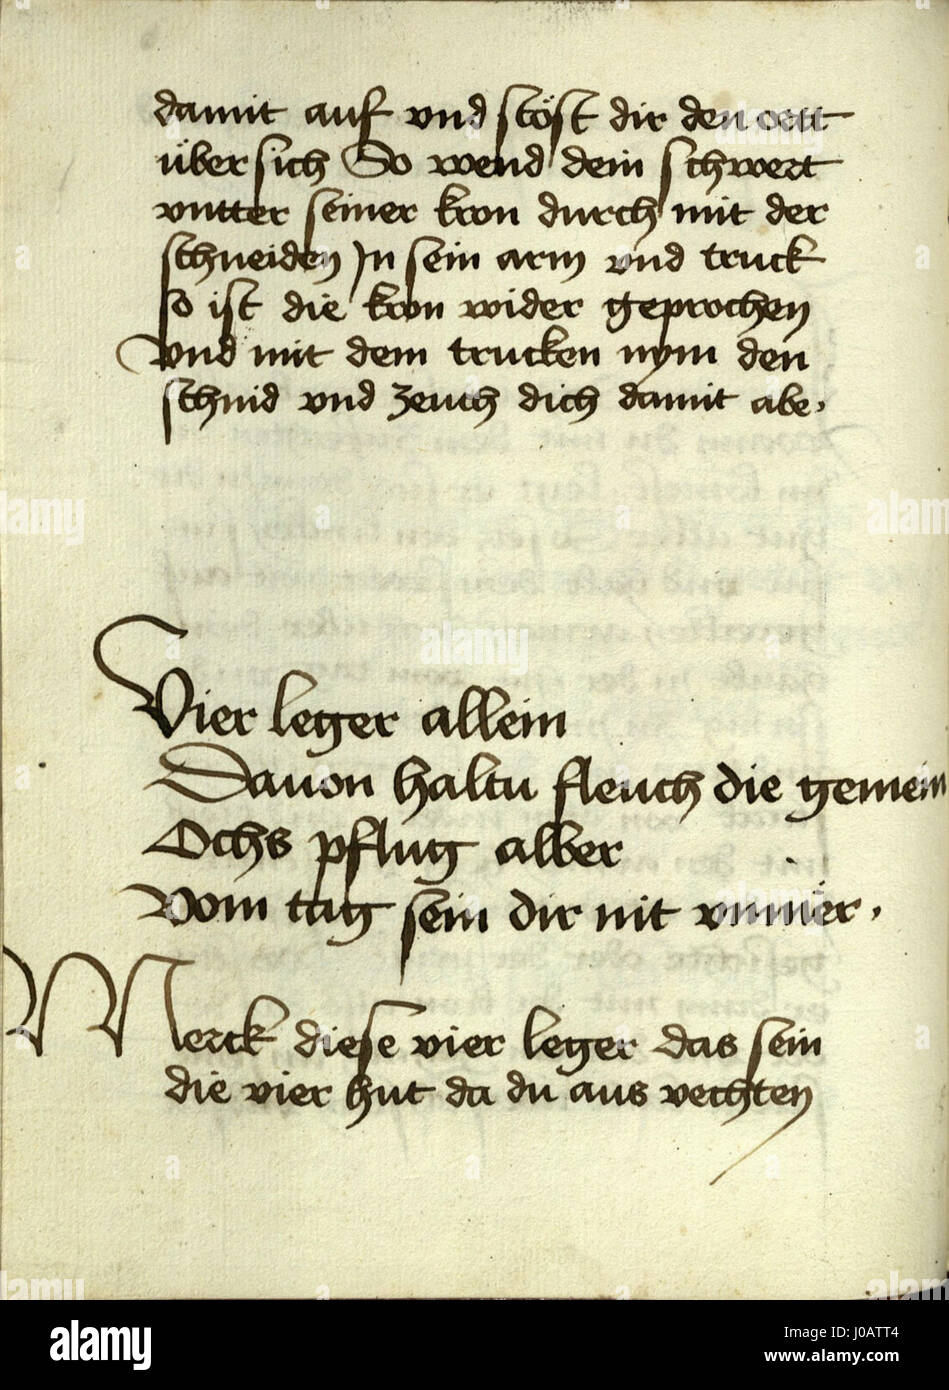 damit auf vnd stöst dir den ort
über sich So wend dein schwert
vntter seiner kron durch mit der
schneiden Jn sein arm vnd truck
so ist die kron wider geprochen
Vnd mit dem trucken nym den
schnid vnd zeuch dich damit abe.
Vier leger allein
Dauon haltu fleuch die gemein
Ochs pflug alber
Vom tag sein dir nit vnmer.
Merck diese vier leger das sein
die vier hut da du aus vechten
alamy
Image ID: J0ATT4
www.alamy.com